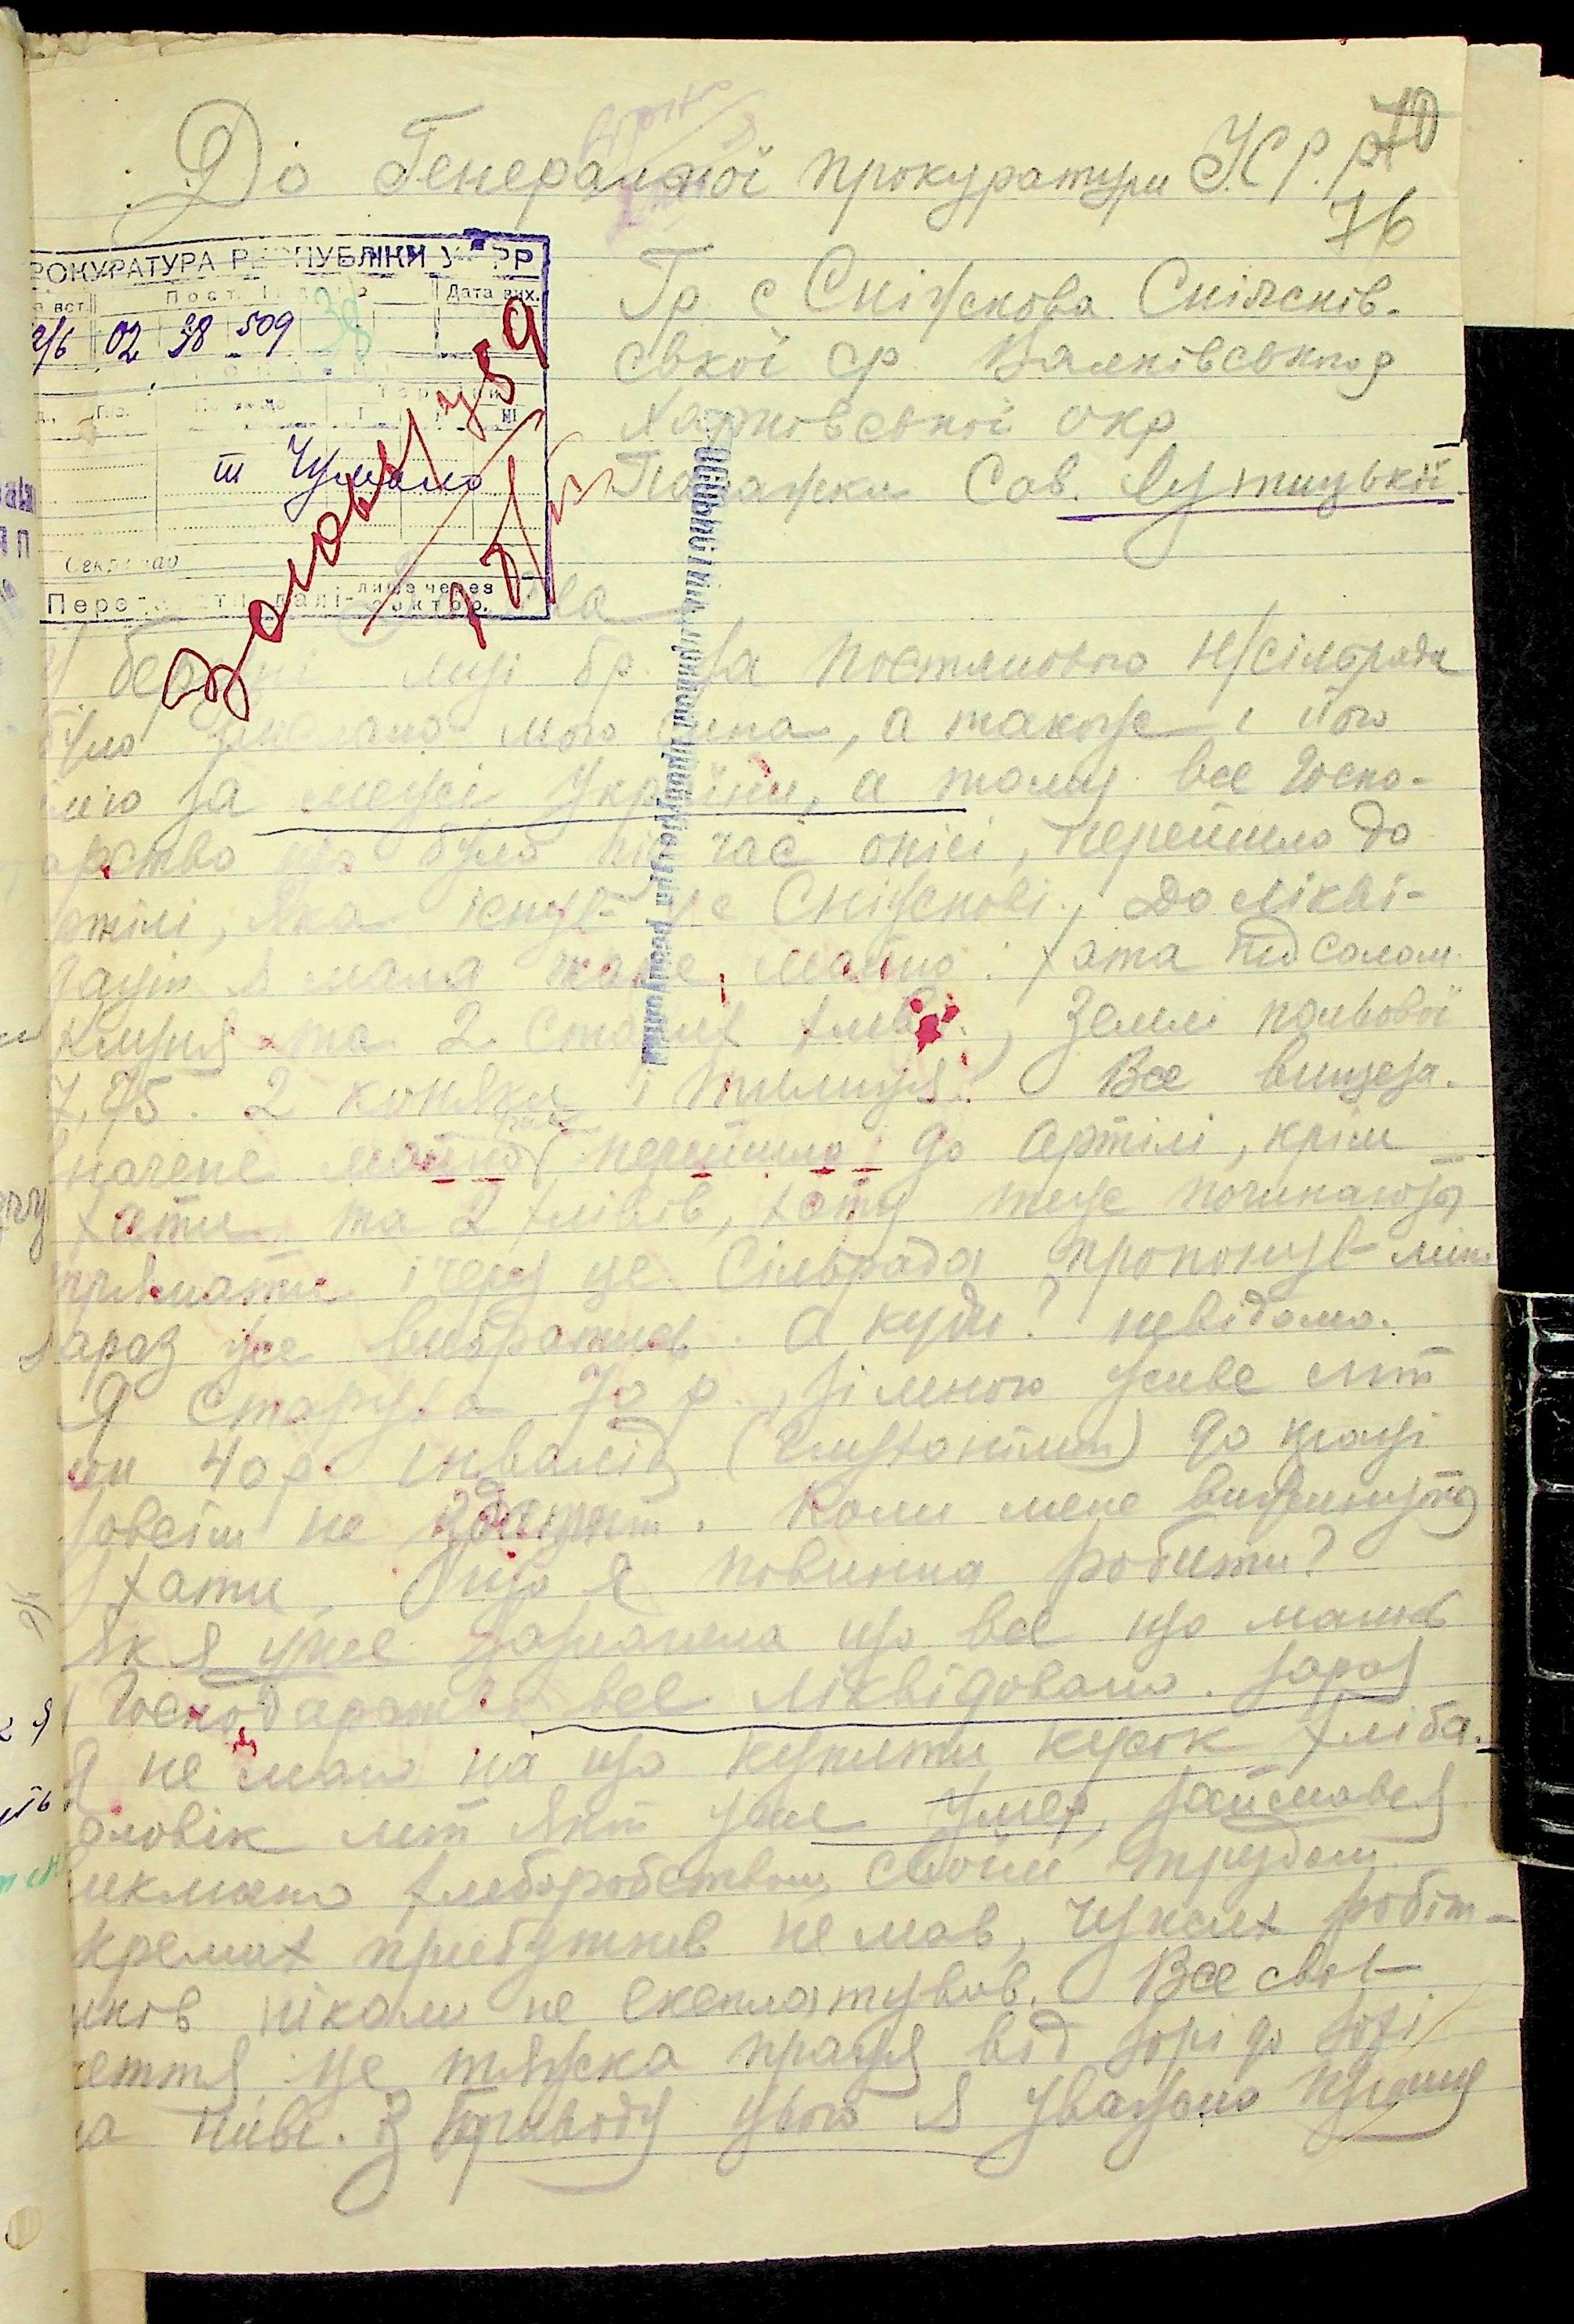 До Генеральної прокуратури У.С.Р.Р
76
ПРОКУРАТУРА РЕСПУБЛІКИ УСРР
Дата вих.
2/6 02 38 509 38
т Чумало
Секретар
Передавати далі лише через сектор.
Гр. с Сніжкова Сніжків-
ської ср Валківськ рд
Харківської окр
Параски Сав. Лутицької
У березні місяці бр. за постановою Н/сільради
було мого сина, а також і його
за межі України, а тому все Госпо-
арство що було під час описі, перейшло до
ртілі, яка існує у с Сніжкові, До лікві-
дації я мала таке майно: хата під солом.
клуня та 2 старих хліви, Землі польової
7.75. 2 коняки і телиця. Все вищеза-
значене майно перейшло до Артілі, крім
хати та 2 хлівів, хату теж починають
і через це Сільрада пропонує мені
зараз же вибратись. А куди? невідомо.
Я старуха 70 р., зі мною живе мій
син 40 р. інвалід (Глухонімий) до праці
зовсім не здатний. Коли мене виженуть
з хати, що я повинна робити?
Як я уже зазначила що все що мали в
Господарстві все ліквідовано. Зараз
я не маю на що купити кусок хліба.
чоловік мій який уже умер, займався
виключно хліборобством, своїм трудом.
окремих прибутків не мав, чужих робіт-
ників ніколи не експлатував. Все своє
життя це тяжка праця від зорі до зорі
на ниві. З приводу цього я уважно прошу